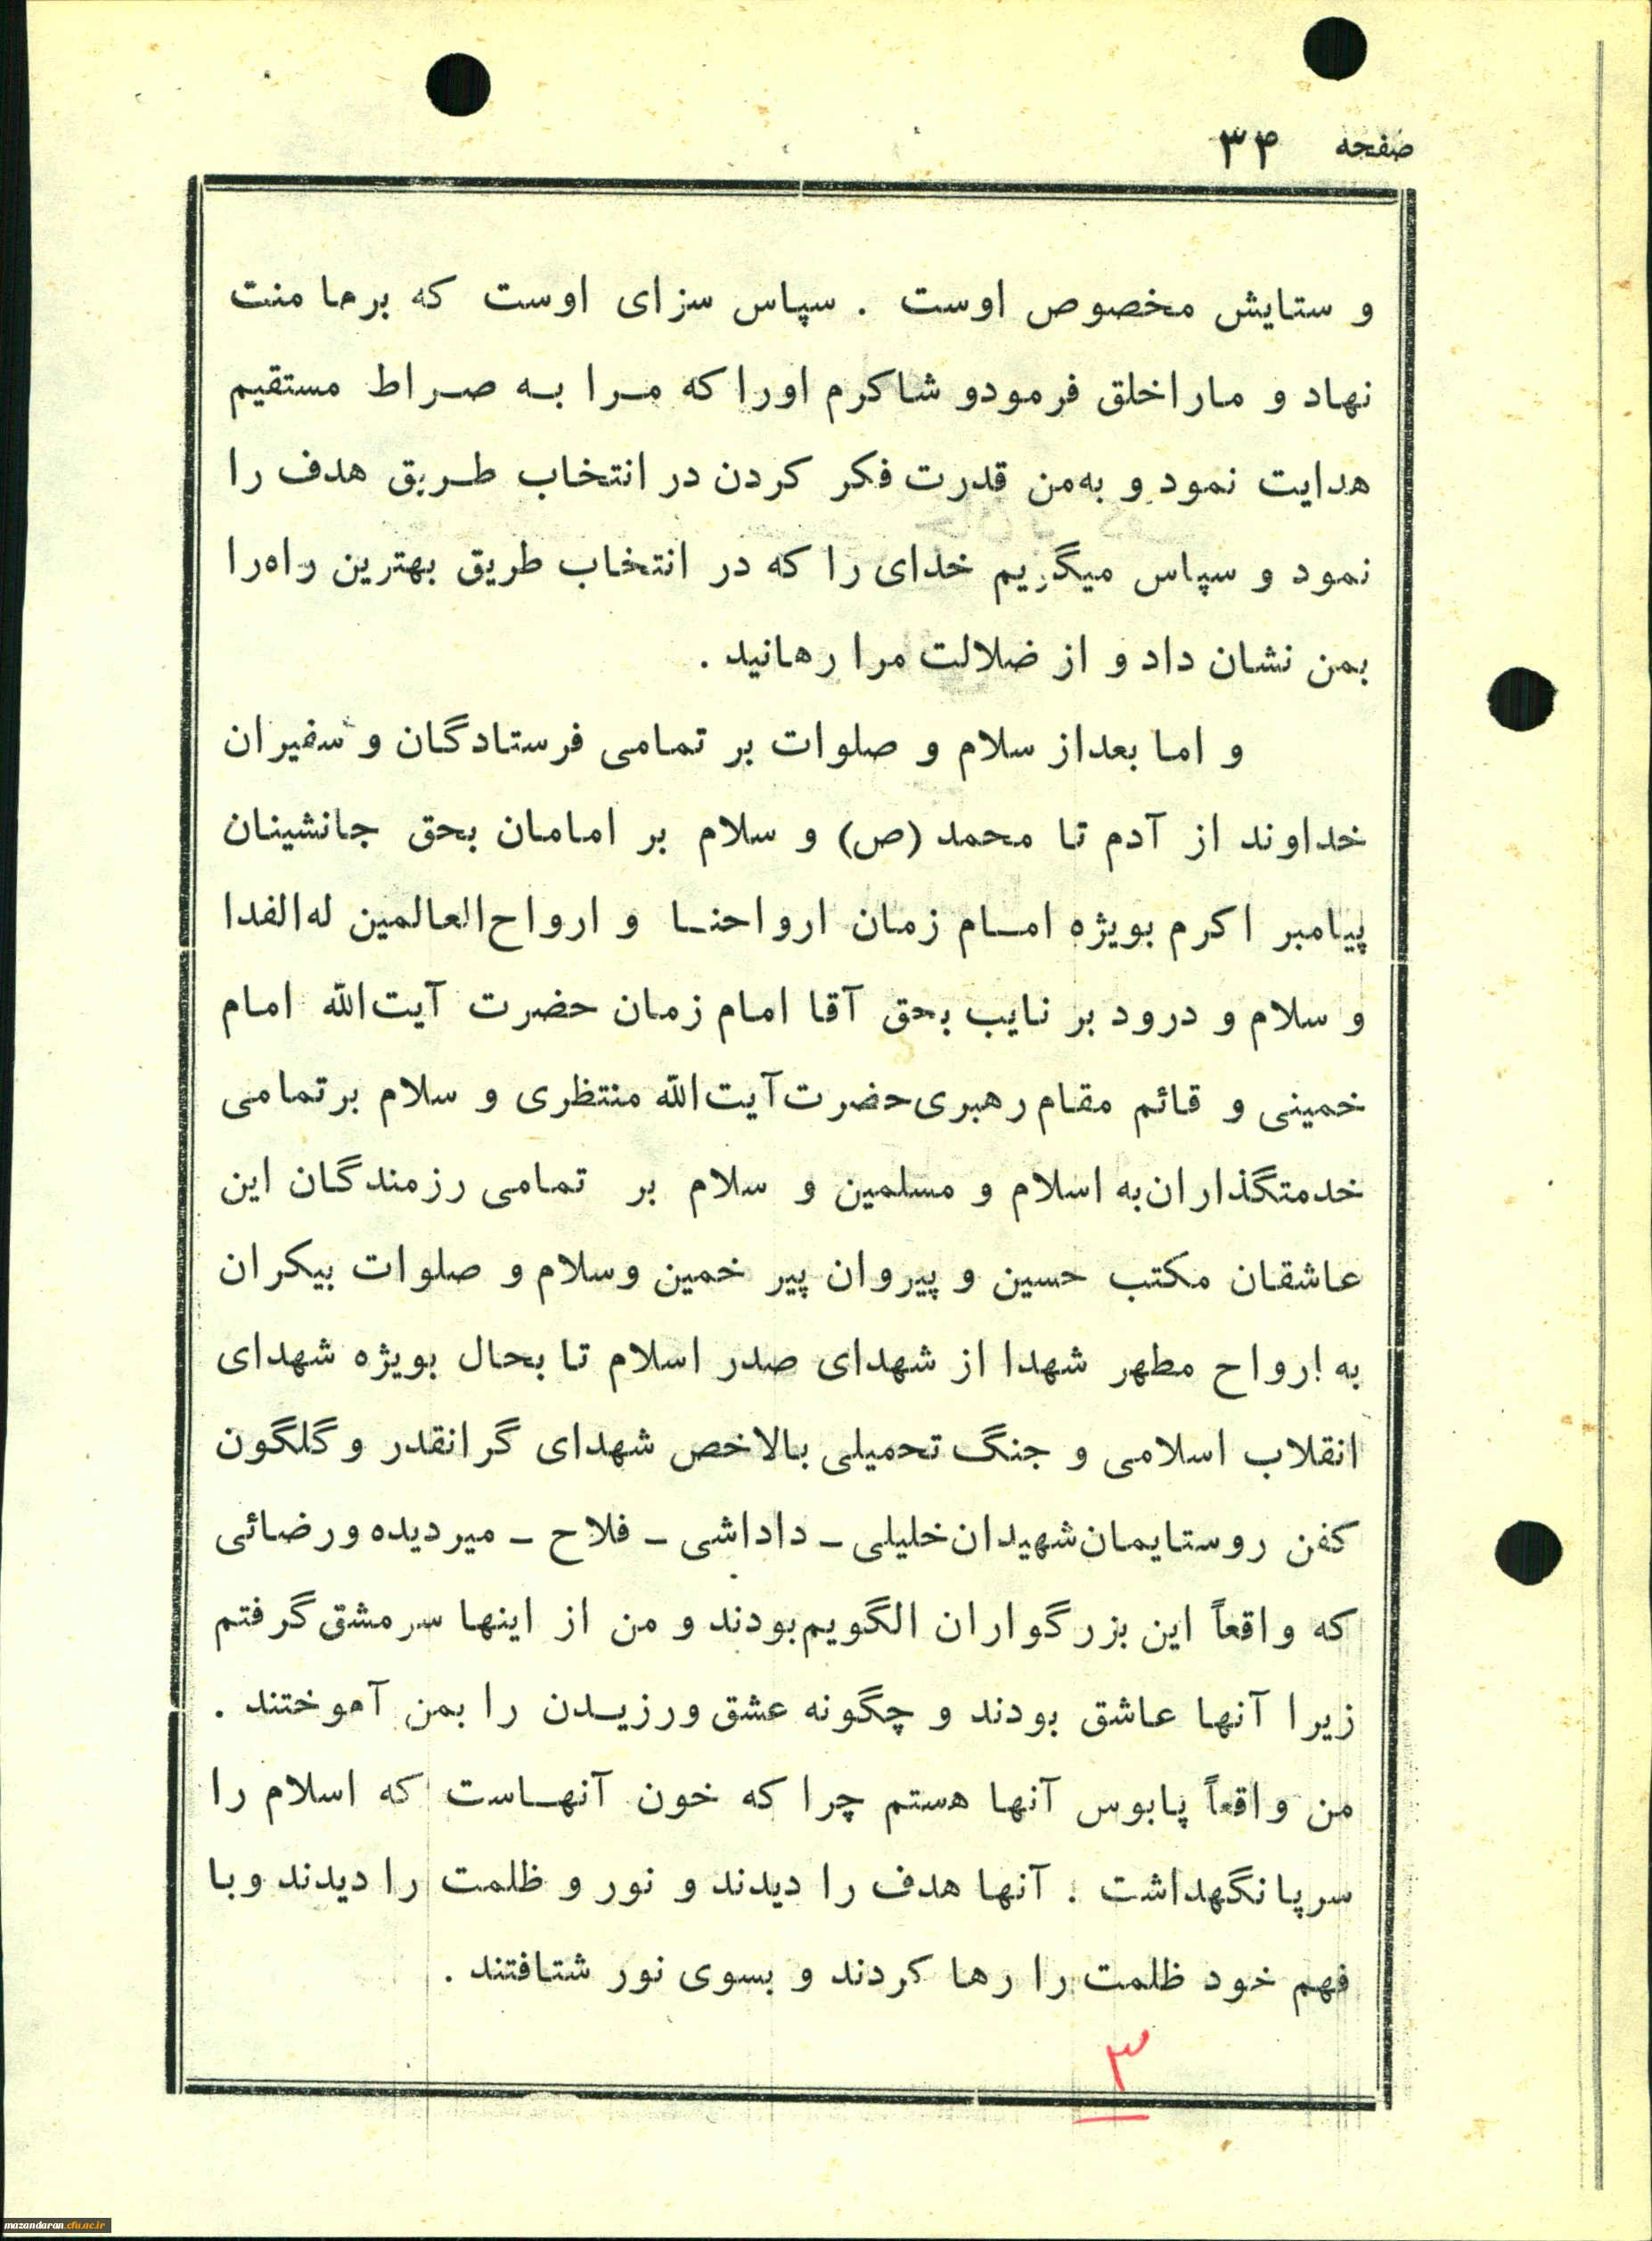 صفحه ۳۴
و ستایش مخصوص اوست . سپاس سزای اوست که برما منت
نهاد و مارا خلق فرمود و شاکرم اورا که مرا به صراط مستقیم
هدایت نمود و به‌من قدرت فکر کردن در انتخاب طریق هدف را
نمود و سپاس میگویم خدای را که در انتخاب طریق بهترین راه‌را
بمن نشان داد و از ضلالت مرا رهانید .
و اما بعداز سلام و صلوات بر تمامی فرستادگان و سفیران
خداوند از آدم تا محمد (ص) و سلام بر امامان بحق جانشینان
پیامبر اکرم بویژه امام زمان ارواحنا و ارواح‌العالمین له‌الفدا
و سلام و درود بر نایب بحق آقا امام زمان حضرت آیت‌الله امام
خمینی و قائم مقام رهبری حضرت آیت‌الله منتظری و سلام برتمامی
خدمتگذاران به اسلام و مسلمین و سلام بر تمامی رزمندگان این
عاشقان مکتب حسین و پیروان پیر خمین وسلام و صلوات بیکران
به ارواح مطهر شهدا از شهدای صدر اسلام تا بحال بویژه شهدای
انقلاب اسلامی و جنگ تحمیلی بالاخص شهدای گرانقدر و گلگون
کفن روستایمان شهیدان خلیلی ـ داداشی ـ فلاح ـ میردیده ورضائی
که واقعاً این بزرگواران الگویم بودند و من از اینها سرمشق گرفتم
زیرا آنها عاشق بودند و چگونه عشق ورزیدن را بمن آموختند .
من واقعاً پابوس آنها هستم چرا که خون آنهاست که اسلام را
سرپا نگهداشت . آنها هدف را دیدند و نور و ظلمت را دیدند وبا
فهم خود ظلمت را رها کردند و بسوی نور شتافتند .
۳
mazandaran.cfu.ac.ir